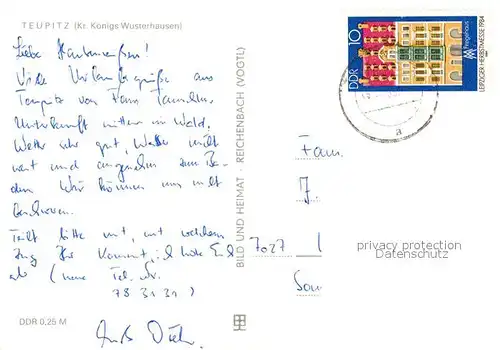 TEUPITZ (Kr. Königs Wusterhausen)
Liebe
Viele Urlaubsgrüße aus
Teupitz von Fam.
Unterkunft mitten im Wald.
Wetter sehr gut, Wasser
und angenehm zum Ba-
den. Wir können uns nicht
beschweren.
Teilt bitte mit, mit welchem
Zug Ihr kommt, ich hole Euch
ab (neue Tel. Nr.
78 31 31)
Gruß
DDR 0,25 M
BILD UND HEIMAT · REICHENBACH (VOGTL)
DDR 10
Fregehaus
LEIPZIGER HERBSTMESSE 1984
a
Fam.
J.
7027 L
privacy protection
Datenschutz